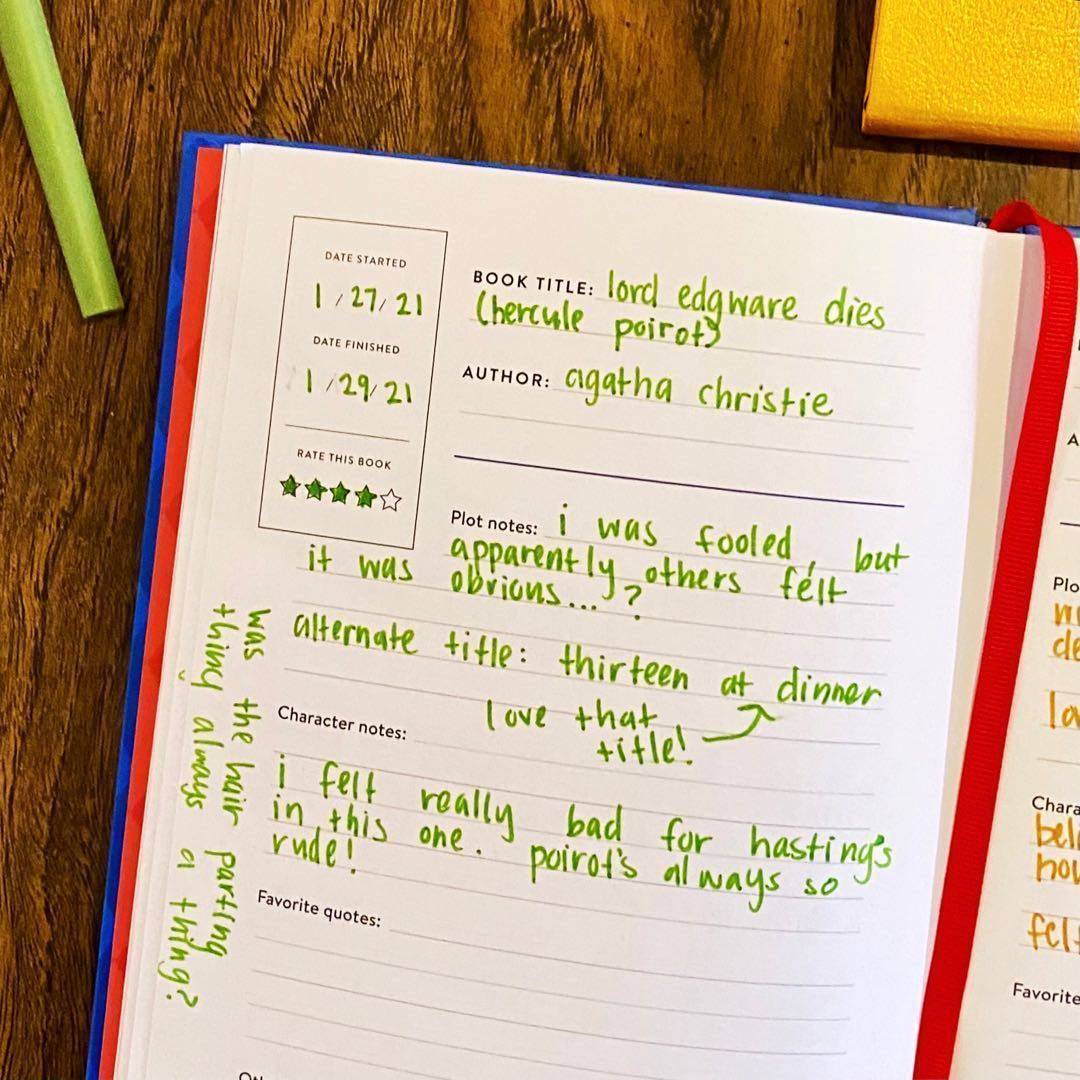 DATE STARTED
1/27/21
DATE FINISHED
1/29/21
RATE THIS BOOK
BOOK TITLE: lord edgware dies
(hercule poirot)
AUTHOR: agatha christie
Plot notes: i was fooled, but
apparently others felt
it was obvious...?
alternate title: thirteen at dinner
love that
title!
Character notes:
i felt really bad for hasting's
in this one. poirot's always so
rude!
Favorite quotes:
was the hair parting
thingy always a thing?
A
Plo
de
la
Chara
bel
hou
felt
Favorite